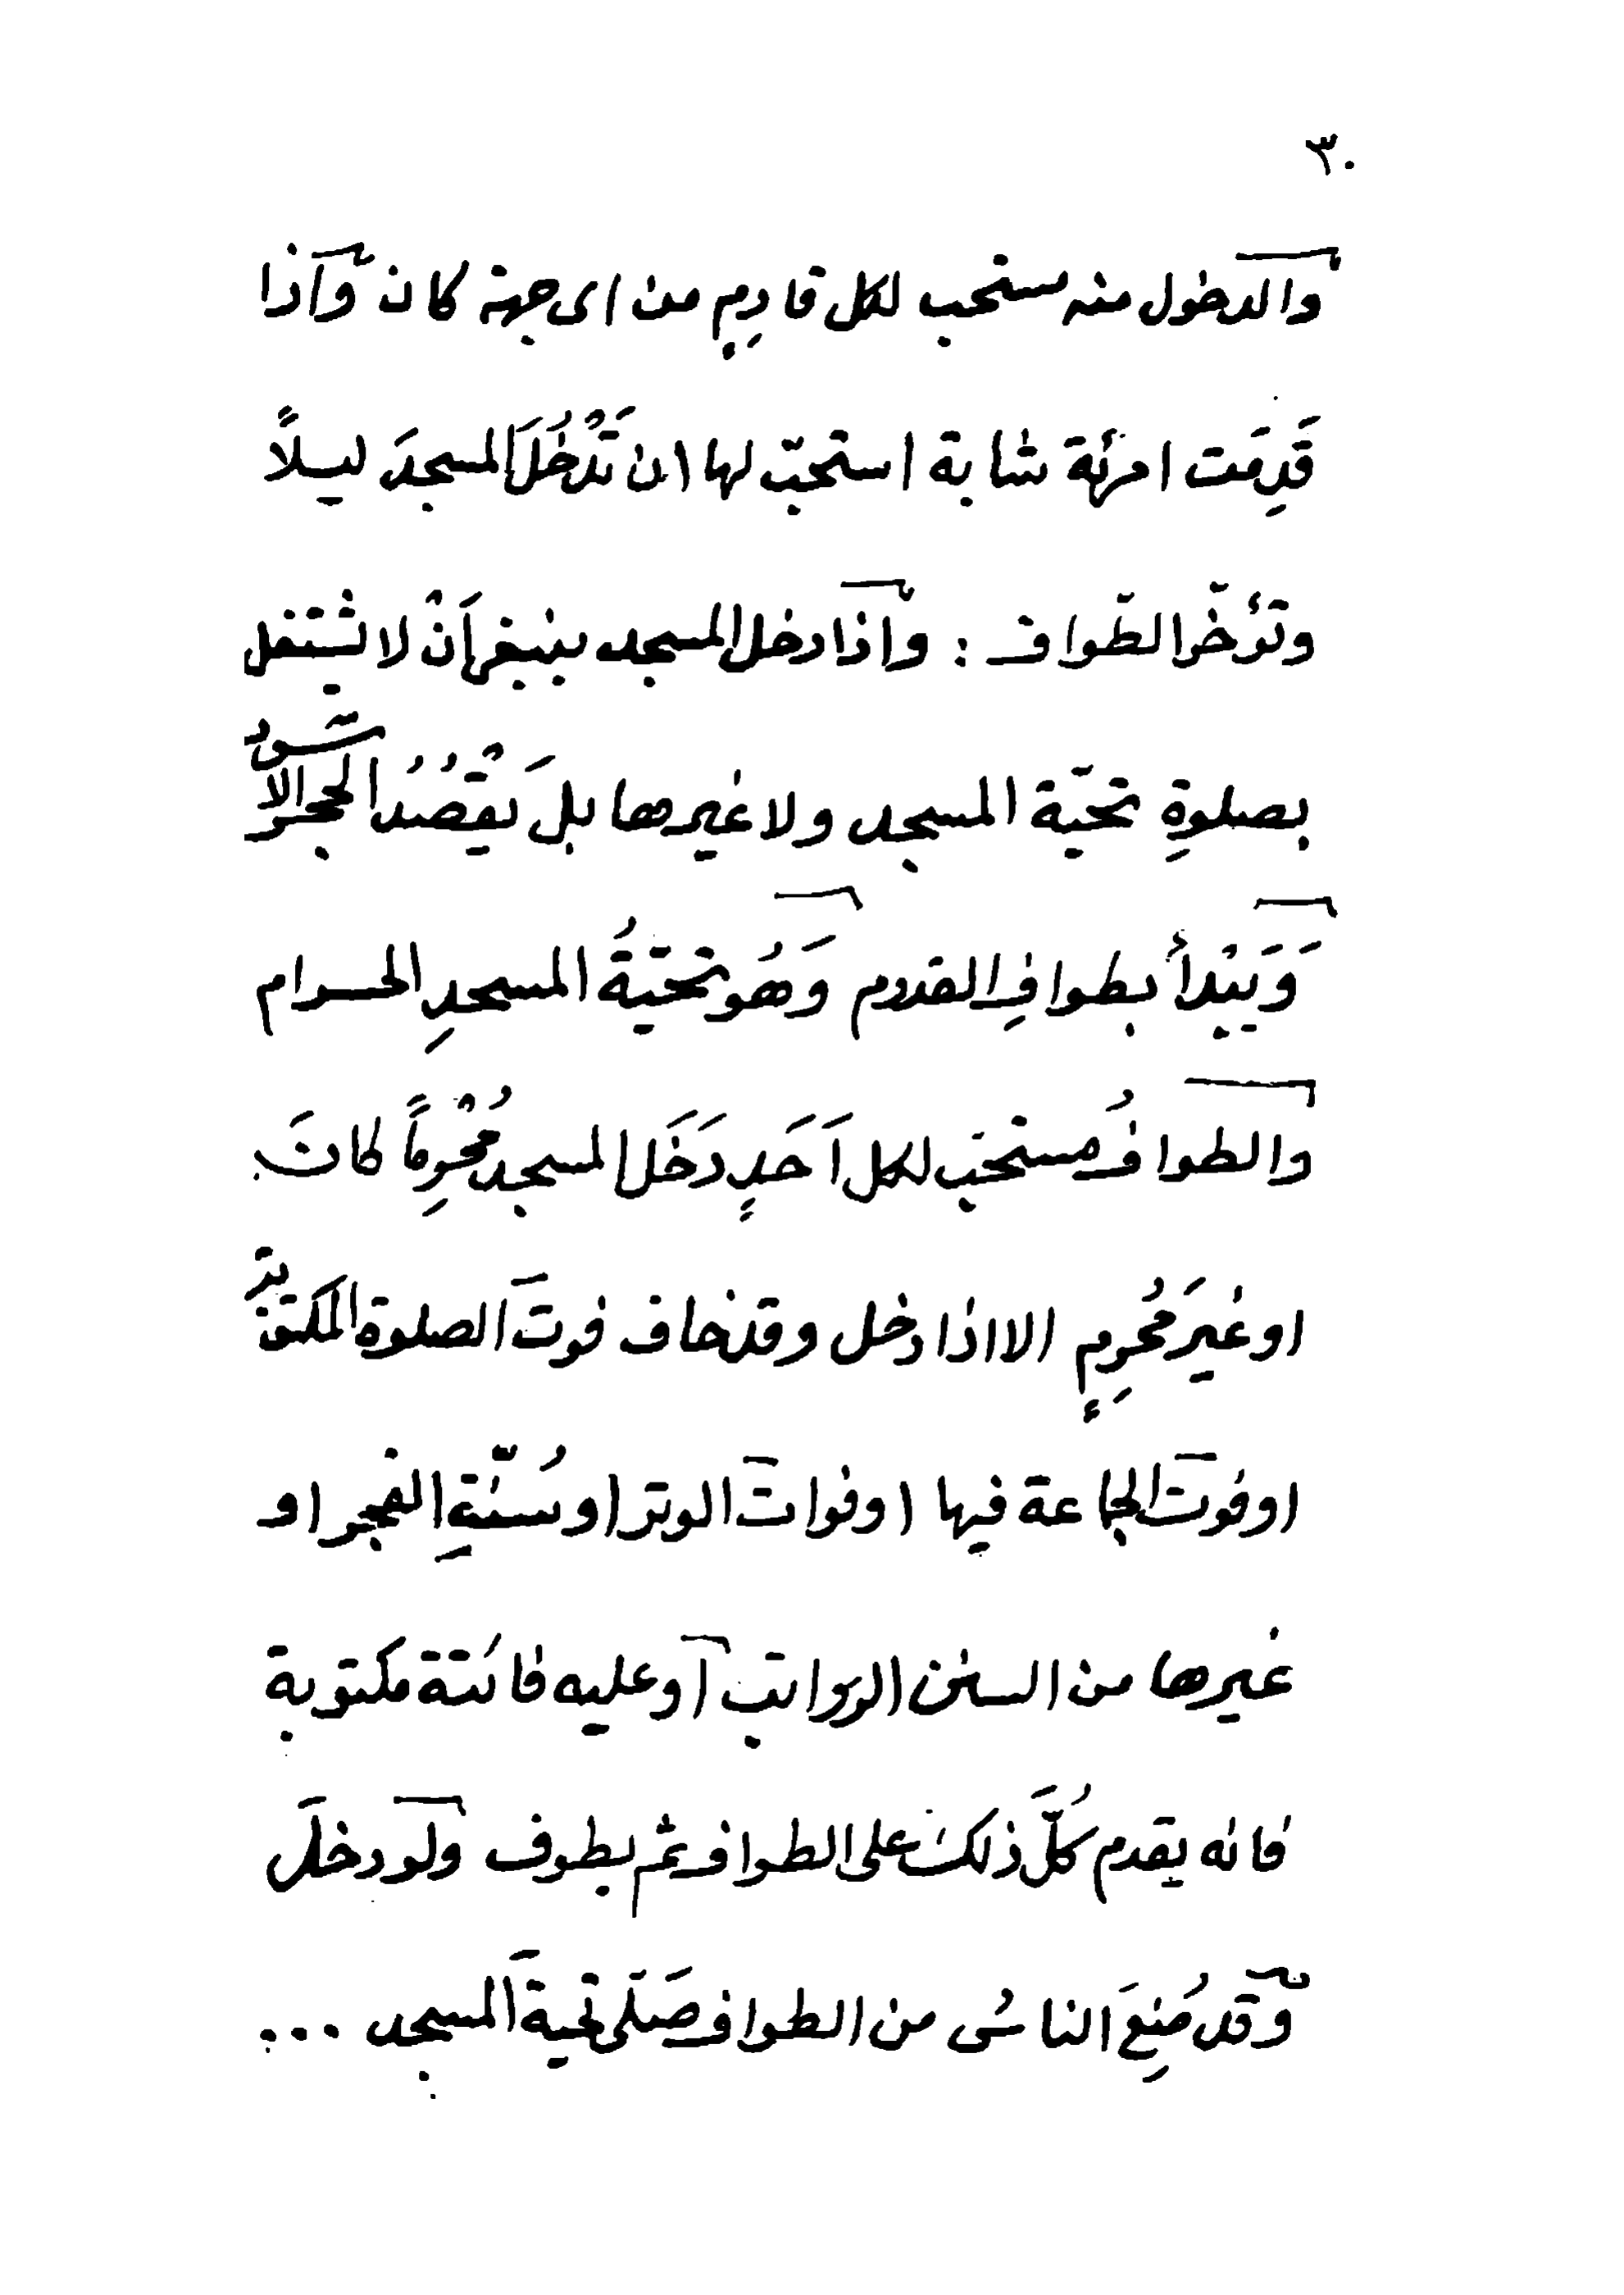 ٣٠
والدخول منه مستحب لكل قادِمٍ من اى جهة كان وَاذا
قَدِمَت امرئة شابة استحبّ لها ان تَدْخُلَ المسجدَ ليلاً
وتؤخّر الطّواف : واذا دخل المسجد ينبغى اَنْ لا يشتغل
بصلوةِ تحيّة المسجد ولا غيرها بل يَقْصُدُ الحجر الاسود
وَيَبْدأُ بطوافِ القدوم وَهُو تحيّةُ المسجدِ الحرام
والطوافُ مستحبّ لكل اَحَدٍ دَخَلَ المسجد مُحْرِماً كانَ
او غيرَ مُحرِمٍ الا اذا دخل وقد خاف فوتَ الصلوة المكتوبة
او فوتَ الجماعة فيها او فواتَ الوتر او سُنّةِ الفجر او
غيرها من السنن الرواتب او عليه فائتة مكتوبة
فانه يقدم كُلَّ ذلك على الطواف ثم يطوف ولو دخلَ
وقد مُنِعَ الناسُ من الطواف صَلّى تحيةَ المسجد ...